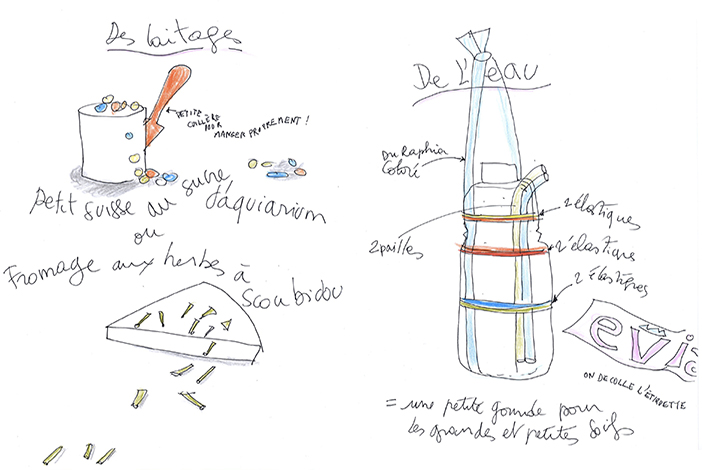 Des laitages
PETITE
CUILLÈRE
POUR
MANGER PROPREMENT !
Petit suisse au sucre d'aquiarium
ou
Fromage aux herbes à
scoubidou
De L'eau
Du Raphia
Coloré
2 pailles
2 élastiques
2 élastique
2 élastiques
evia
ON DECOLLE L'ÉTIQUETTE
= une petite gourde pour
les grandes et petites soifs